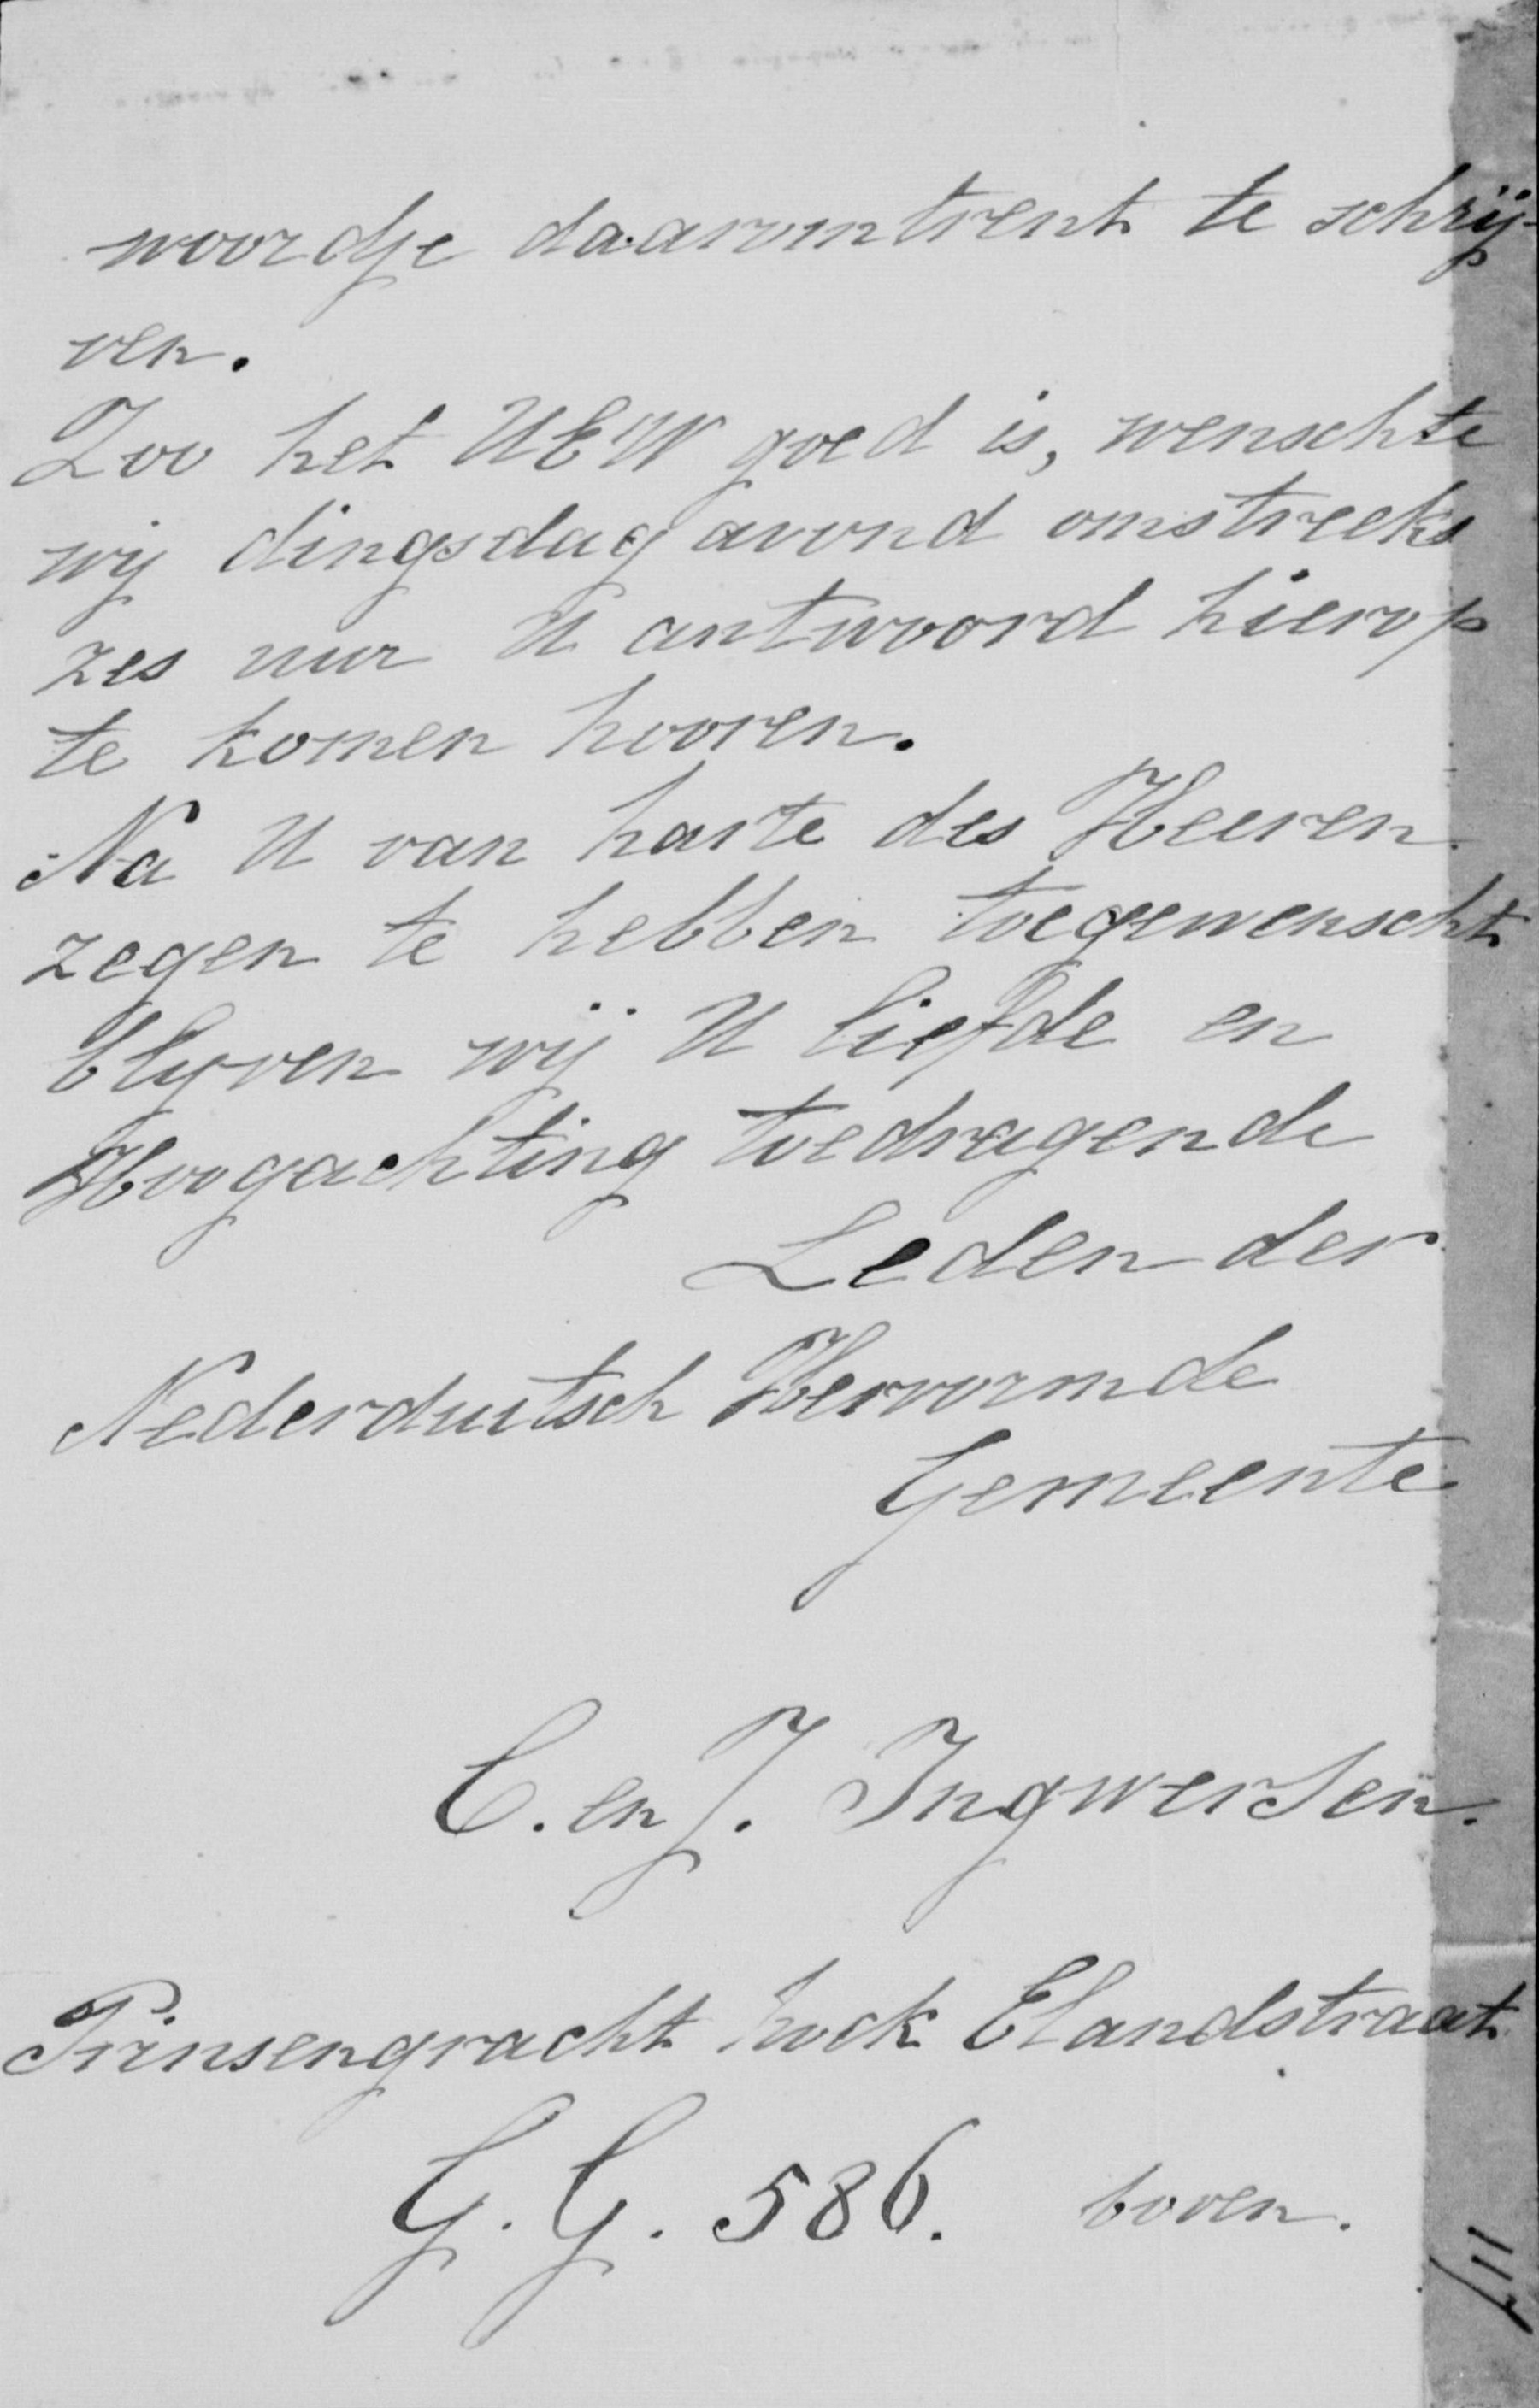 woordje daaromtrent te schrij-
ven.
Zoo het UEW goed is, wenschte
wij dingsdag avond omstreeks
zes uur U antwoord hierop
te komen hooren.
Na U van harte des Heeren
zegen te hebben toegewenscht
blyven wij U liefde en
Hoogachting toedragende
Leden der
Nederduitsch Hervormde
Gemeente
C. en J. Ingwersen.
Prinsengracht hoek Elandstraat
G. G. 586. boven.